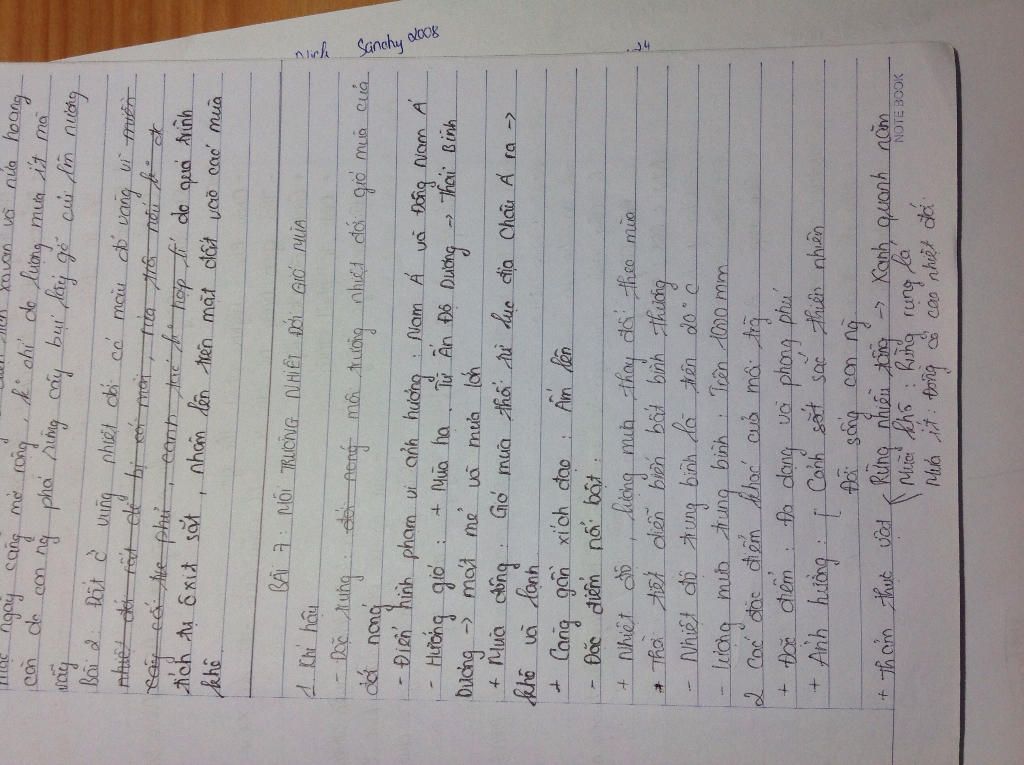 Sanchy 2008
24
ngày càng mở rộng, k chỉ do lượng mưa ít mà
còn do con ng phá rừng cây bụi lấy gỗ củi lên nương
rẫy
Bài 2. Đất ở vùng nhiệt đới có màu đỏ vàng vì miền
nhiệt đới rất dễ bị
cây cối che phủ, canh tác k hợp lí do quá trình
tích tụ ôxit sắt, nhôm lên trên mặt đất vào các mùa
khô
BÀI 7: MÔI TRƯỜNG NHIỆT ĐỚI GIÓ MÙA
1 Khí hậu
- Đặc trưng: đới nóng môi trường nhiệt đới gió mùa của
đới nóng
- Điển hình phạm vi ảnh hưởng: Nam Á và Đông Nam Á
- Hướng gió: + Mùa hạ. Từ Ấn Độ Dương -> Thái Bình
Dương -> mát mẻ và mưa lớn
+ Mùa đông: Gió mùa thổi từ lục địa Châu Á ra ->
khô và lạnh
+ Càng gần xích đạo: Ấm lên
- Đặc điểm nổi bật:
+ Nhiệt độ, lượng mưa thay đổi theo mùa
* Thời tiết diễn biến bất bình thường
- Nhiệt độ trung bình là trên 20°C
- Lượng mưa trung bình: Trên 1000 mm
2 Các đặc điểm khác của môi trg
+ Đặc điểm: Đa dạng và phong phú
+ Ảnh hưởng: [ Cảnh sắt sắc thiên nhiên
Đời sống con ng
+ Thảm thực vật < Rừng nhiều tầng -> Xanh quanh năm
Mùa khô: Rừng rụng lá
Mưa ít: Đồng cỏ cao nhiệt đới
NOTEBOOK